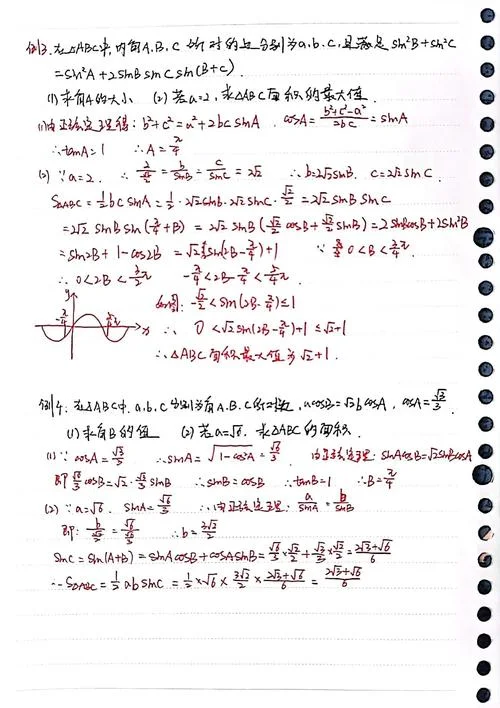 例3. 在△ABC中, 内角A.B.C所对的边分别为a.b.c, 且满足 sin²B+sin²C
=sin²A+2sinBsinCsin(B+C).
(1) 求角A的大小 (2) 若a=2, 求△ABC面积的最大值.
(1)由正弦定理得: b²+c²=a²+2bcsinA. cosA=(b²+c²-a²)/2bc=sinA
∴tanA=1 ∴A=π/4
(2) ∵a=2. ∴ 2/(√2/2)=b/sinB=c/sinC=2√2 ∴b=2√2sinB. c=2√2sinC.
S△ABC=½bcsinA=½·2√2sinB·2√2sinC·√2/2=2√2sinBsinC
=2√2sinBsin(π/4+B)=2√2sinB(√2/2cosB+√2/2sinB)=2sinBcosB+2sin²B
=sin2B+1-cos2B=√2sin(2B-π/4)+1 ∵0<B<3/4π.
∴0<2B<3/2π -π/4<2B-π/4<5/4π.
y
-π/4
x
如图: -√2/2<sin(2B-π/4)≤1
∴ 0<√2sin(2B-π/4)+1≤√2+1
∴△ABC面积最大值为√2+1.
例4: 在△ABC中. a.b.c分别为角A.B.C的对边, acosB=√2bcosA, cosA=√3/3.
(1)求角B的值 (2)若a=√6. 求△ABC的面积.
(1)∵cosA=√3/3 ∴sinA=√(1-cos²A)=√6/3 由正弦定理: sinAcosB=√2sinBcosA
即√6/3cosB=√2·√3/3sinB ∴sinB=cosB ∴tanB=1 ∴B=π/4
(2) ∵a=√6. sinA=√6/3 ∴由正弦定理: a/sinA=b/sinB
即: b/(√2/2)=√6/(√6/3) ∴b=3√2/2
sinC=sin(A+B)=sinAcosB+cosAsinB=√6/3×√2/2+√3/3×√2/2=(2√3+√6)/6
∴S△ABC=½absinC=½×√6×3√2/2×(2√3+√6)/6=(2√3+√6)/6